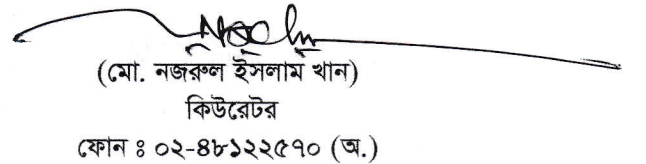 (মো. নজরুল ইসলাম খান)
কিউরেটর
ফোন ঃ ০২-৪৮১২২৫৭০ (অ.)